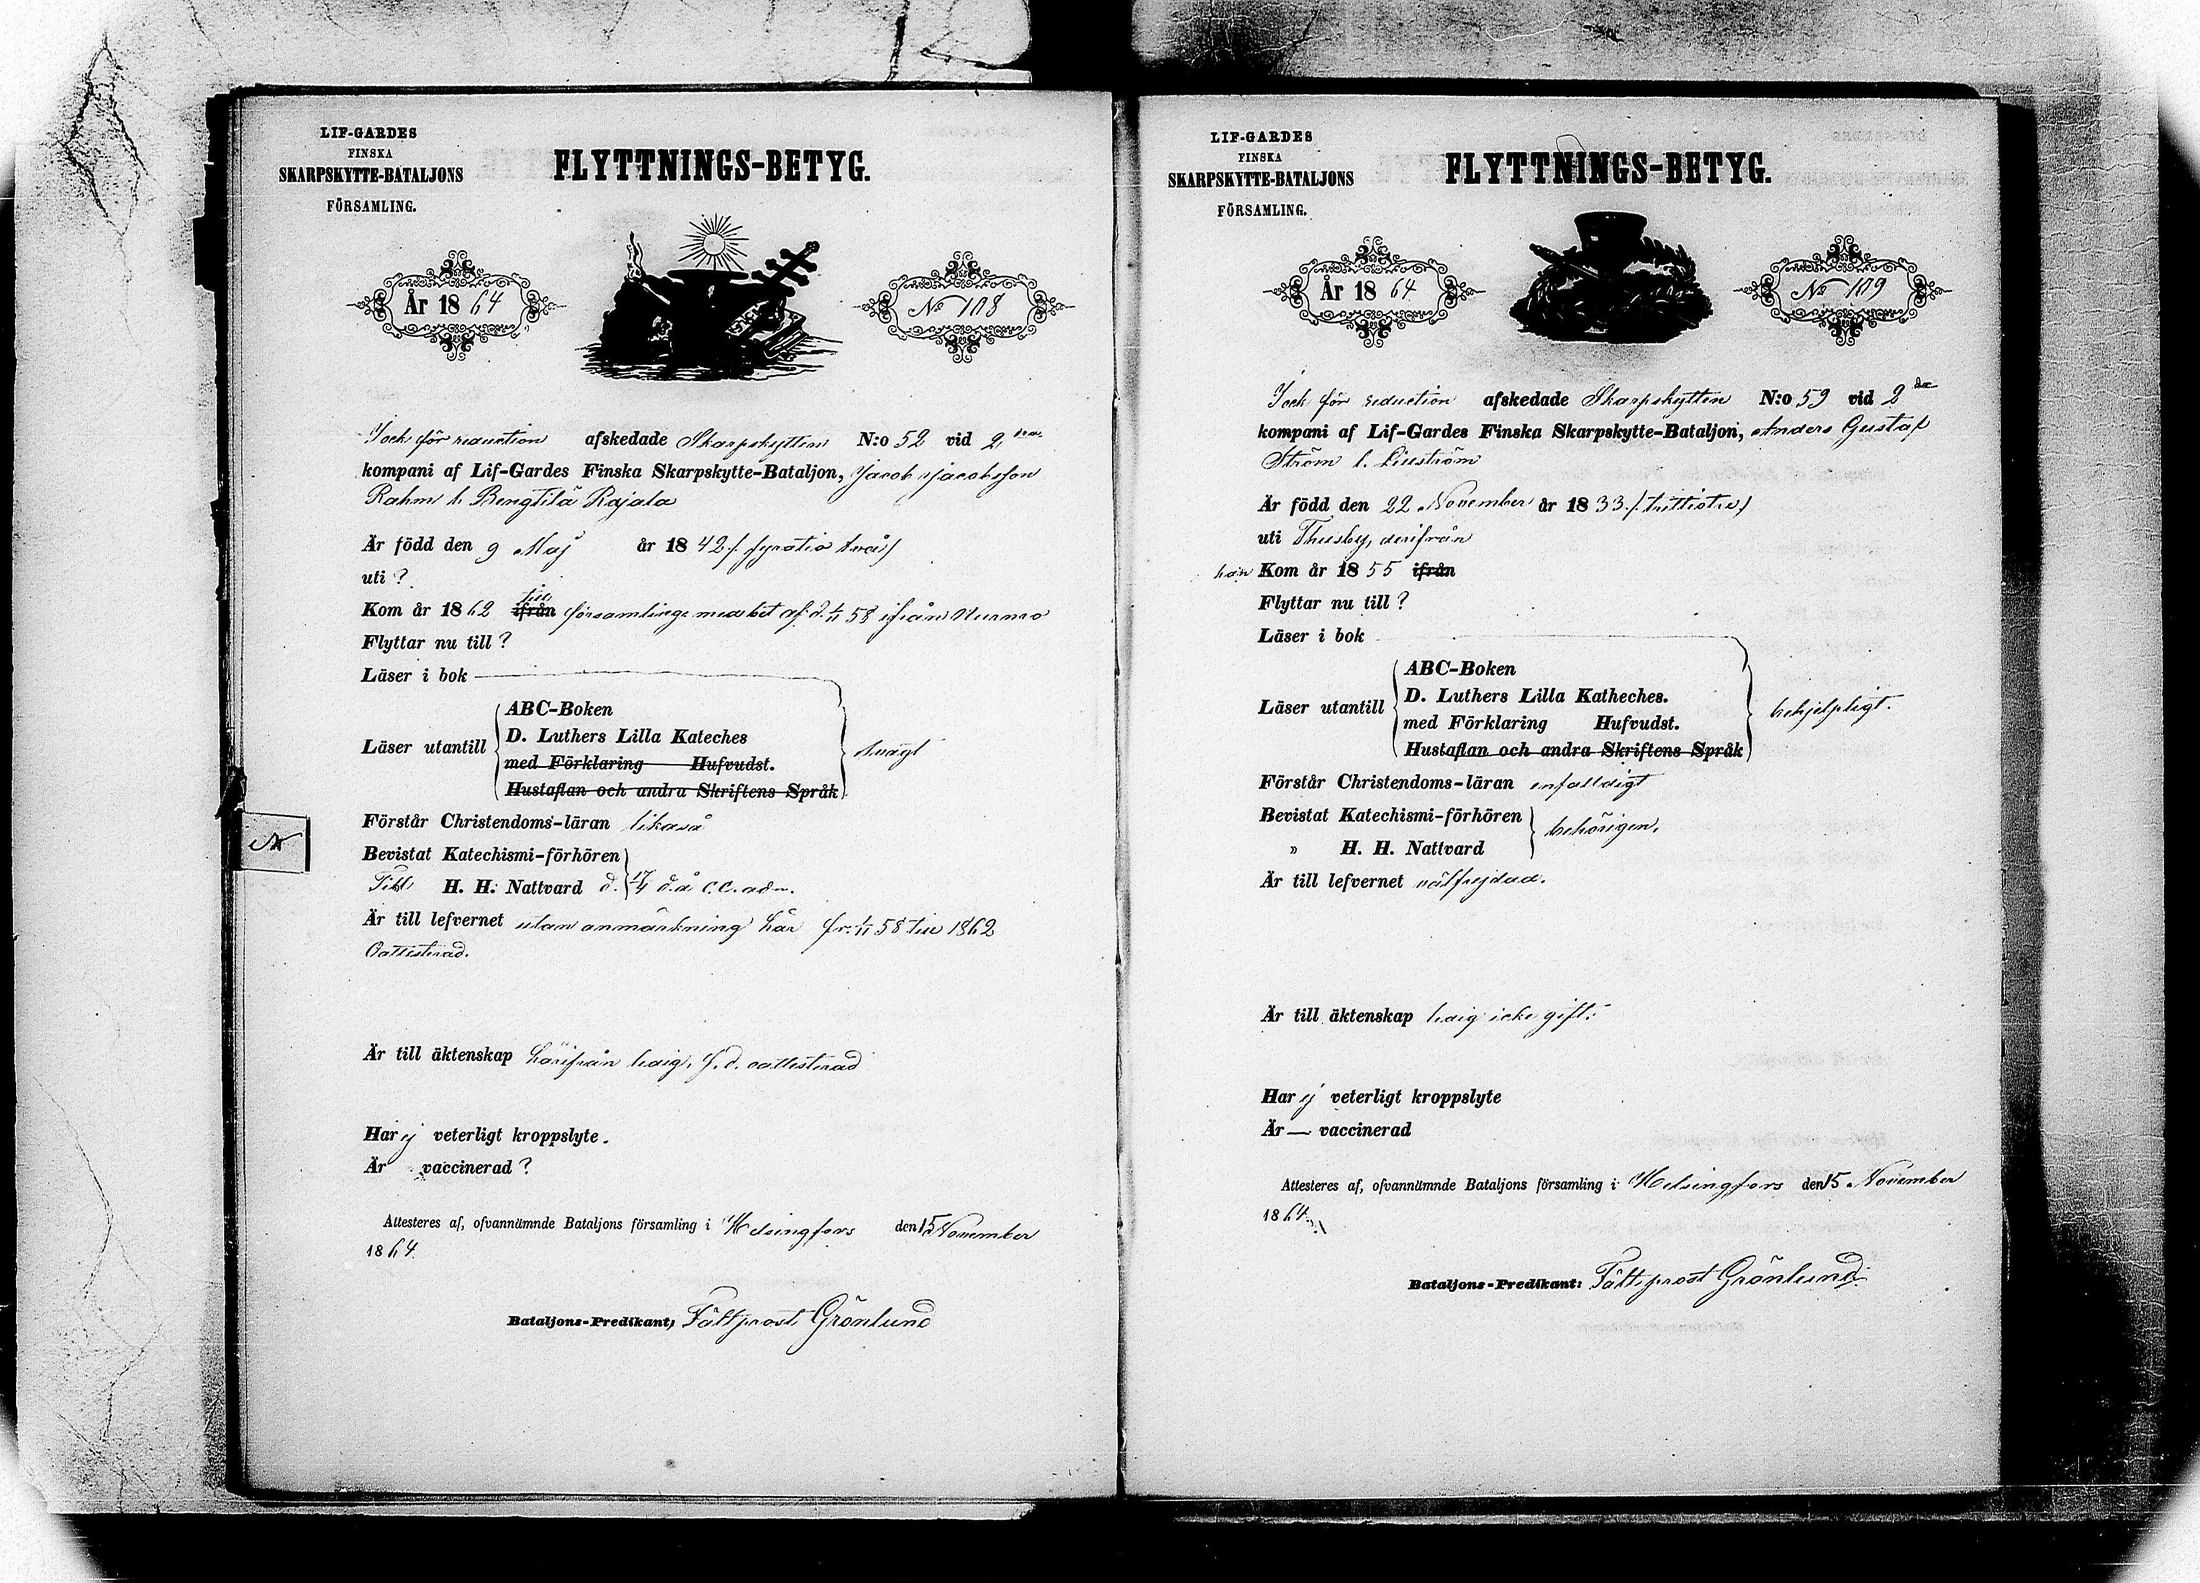 LIF-GARDES
FINSKA
SKARPSKYTTE-BATALJONS
FÖRSAMLING.
FLYTTNINGS-BETYG.
År 1864
No 108
I och för reduction afskedade Skarpskytten N:o 52 vid 2dra
kompani af Lif-Gardes Finska Skarpskytte-Bataljon, Jacob Jacobsson
Rahm l. Bengtilä Rajala
Är född den 9 Maj år 1842 / fyratio två /
uti ?
Kom år 1862 ifrån till församling. med bet. af d. 1/11 58 ifrån Nurmo
Flyttar nu till ?
Läser i bok
Läser utantill
ABC-Boken
D. Luthers Lilla Kateches
med Förklaring Hufvudst.
Hustaflan och andra Skriftens Språk
svagt
Förstår Christendoms-läran likaså
Bevistat Katechismi-förhören
H. H. Nattvard d. d.å.
Är till lefvernet utan anmärkning här fr. 1/11 58 till 1862
Oattesterad.
Är till äktenskap härifrån ledig, f. d. oattesterad
Har ej veterligt kroppslyte.
Är vaccinerad ?
Attesteres af, ofvannämnde Bataljons församling i Helsingfors den 15 November
1864.
Bataljons-Predikant, Fältprost Grönlund
LIF-GARDES
FINSKA
SKARPSKYTTE-BATALJONS
FÖRSAMLING.
FLYTTNINGS-BETYG.
År 1864
No 109
I och för reduction afskedade Skarpskytten N:o 59 vid 2dra
kompani af Lif-Gardes Finska Skarpskytte-Bataljon, Anders Gustaf
Ström l.
Är född den 22 November år 1833 / trettiotre /
uti Thusby, derifrån
han Kom år 1855 ifrån
Flyttar nu till ?
Läser i bok
Läser utantill
ABC-Boken
D. Luthers Lilla Katheches.
med Förklaring Hufvudst.
Hustaflan och andra Skriftens Språk
behjelpligt.
Förstår Christendoms-läran enfaldigt
Bevistat Katechismi-förhören
" H. H. Nattvard
behörigen.
Är till lefvernet välfrejdad.
Är till äktenskap ledig icke gift.
Har ej veterligt kroppslyte
Är — vaccinerad
Attesteres af, ofvannämnde Bataljons församling i Helsingfors den 15 November
1864.
Bataljons-Predikant: Fältprost Grönlund